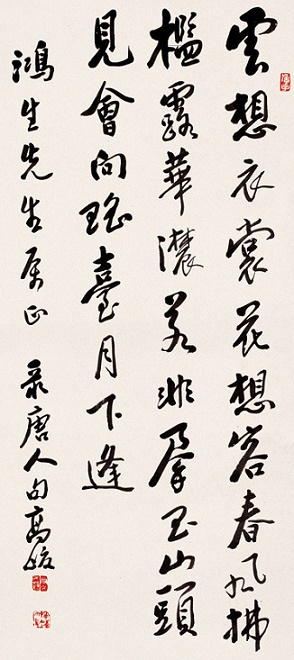 雲想衣裳花想容春風拂
檻露華濃若非羣玉山頭
見會向瑤臺月下逢
鴻生先生属正 录唐人句高